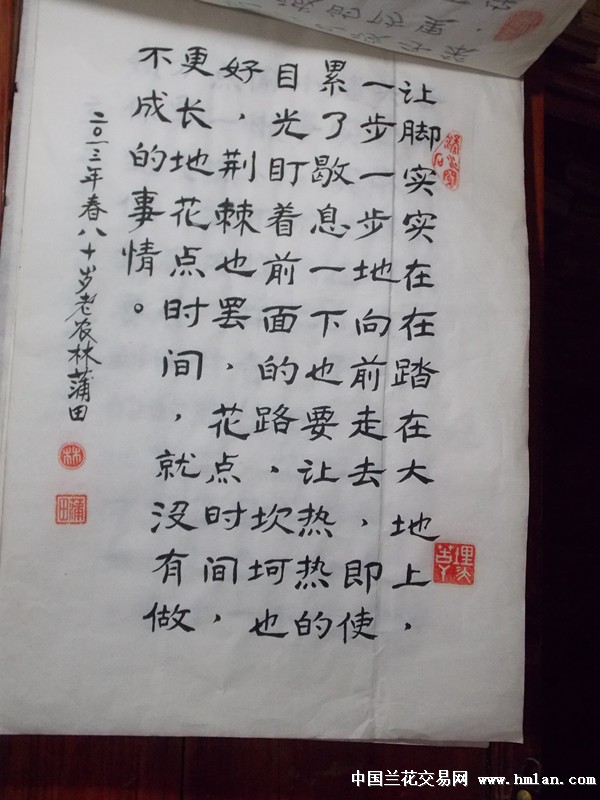 让脚实实在在踏在大地上，
一步一步地向前走去，即使
累了歇息一下也要让热热的
目光盯着前面的路，坎坷也
好，荆棘也罢，花点时间，
更长地花点时间，就没有做
不成的事情。
二〇一三年春八十岁老农林蒲田
林
蒲田
中国兰花交易网 www.hmlan.com